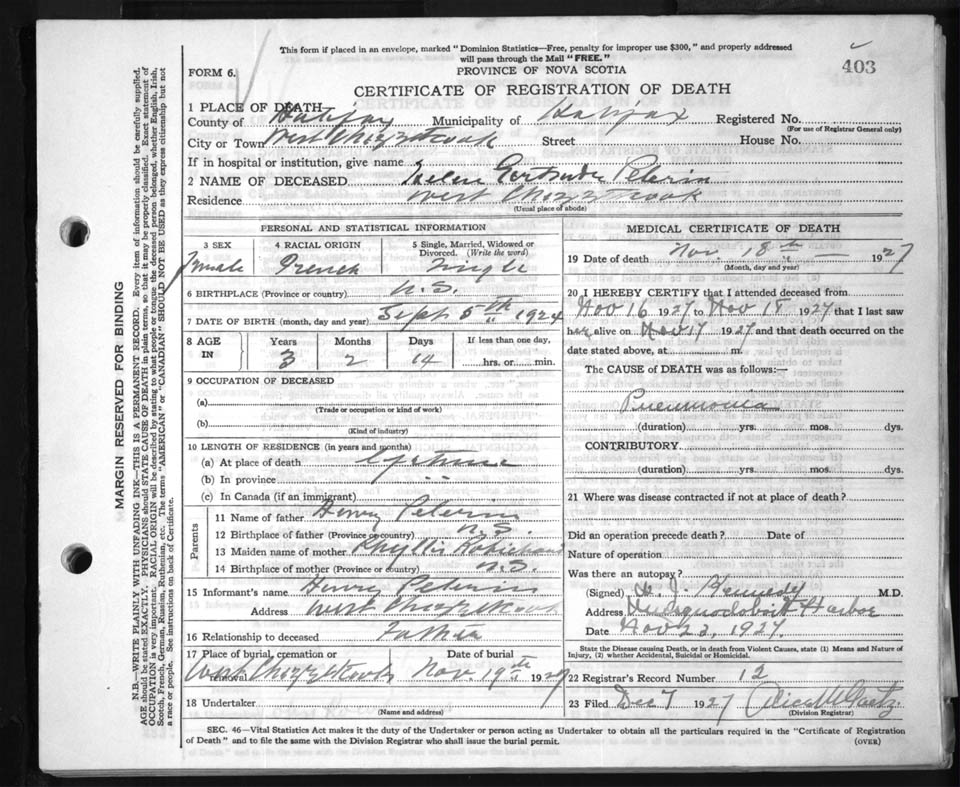 This form if placed in an envelope, marked "Dominion Statistics—Free, penalty for improper use $300," and properly addressed
will pass through the Mail "FREE."
403
FORM 6.
PROVINCE OF NOVA SCOTIA
CERTIFICATE OF REGISTRATION OF DEATH
1 PLACE OF DEATH
County of Halifax Municipality of Halifax Registered No.
(For use of Registrar General only)
City or Town West Chezzetcook Street House No.
If in hospital or institution, give name
2 NAME OF DECEASED Gertrude Peterin
Residence West Chezzetcook
(Usual place of abode)
PERSONAL AND STATISTICAL INFORMATION
3 SEX 4 RACIAL ORIGIN 5 Single, Married, Widowed or Divorced. (Write the word)
Female French Single
6 BIRTHPLACE (Province or country) N.S.
7 DATE OF BIRTH (month, day and year) Sept 5th 1924
8 AGE IN Years Months Days If less than one day,
3 2 14 hrs. or min.
9 OCCUPATION OF DECEASED
(a)
(Trade or occupation or kind of work)
(b)
(Kind of industry)
10 LENGTH OF RESIDENCE (in years and months)
(a) At place of death
(b) In province " "
(c) In Canada (if an immigrant)
Parents
11 Name of father Henry Peterin
12 Birthplace of father (Province or country) N.S.
13 Maiden name of mother Phyllis
14 Birthplace of mother (Province or country) N.S.
15 Informant's name Henry Peterin
Address West Chezzetcook
16 Relationship to deceased Father
17 Place of burial, cremation or removal Date of burial
West Chezzetcook Nov. 19th 1927
18 Undertaker
(Name and address)
MEDICAL CERTIFICATE OF DEATH
19 Date of death Nov. 18th — 1927
(Month, day and year)
20 I HEREBY CERTIFY that I attended deceased from
Nov 16 1927 to Nov 18 1927 that I last saw
her alive on Nov 17 1927 and that death occurred on the
date stated above, at m.
The CAUSE of DEATH was as follows:—
Pneumonia
(duration) yrs. mos. dys.
CONTRIBUTORY
(duration) yrs. mos. dys.
21 Where was disease contracted if not at place of death?
Did an operation precede death? Date of
Nature of operation
Was there an autopsy?
(Signed) J. Kennedy M.D.
Address Musquodoboit Harbor
Date Nov 23, 1927.
State the Disease causing Death, or in death from Violent Causes, state (1) Means and Nature of
Injury, (2) whether Accidental, Suicidal or Homicidal.
22 Registrar's Record Number 12
23 Filed Dec 7 1927
(Division Registrar)
SEC. 46—Vital Statistics Act makes it the duty of the Undertaker or person acting as Undertaker to obtain all the particulars required in the "Certificate of Registration
of Death" and to file the same with the Division Registrar who shall issue the burial permit.
(OVER)
MARGIN RESERVED FOR BINDING
N.B.—WRITE PLAINLY WITH UNFADING INK—THIS IS A PERMANENT RECORD. Every item of information should be carefully supplied.
AGE should be stated EXACTLY. PHYSICIANS should STATE CAUSE OF DEATH in plain terms, so that it may be properly classified. Exact statement of
OCCUPATION is very important. RACIAL ORIGIN will be described by stating to what people or tongue the deceased person belonged, whether English, Irish,
Scotch, French, German, Russian, Ruthenian, etc. The terms "AMERICAN" or "CANADIAN" SHOULD NOT BE USED as they express citizenship but not
a race or people. See instructions on back of Certificate.